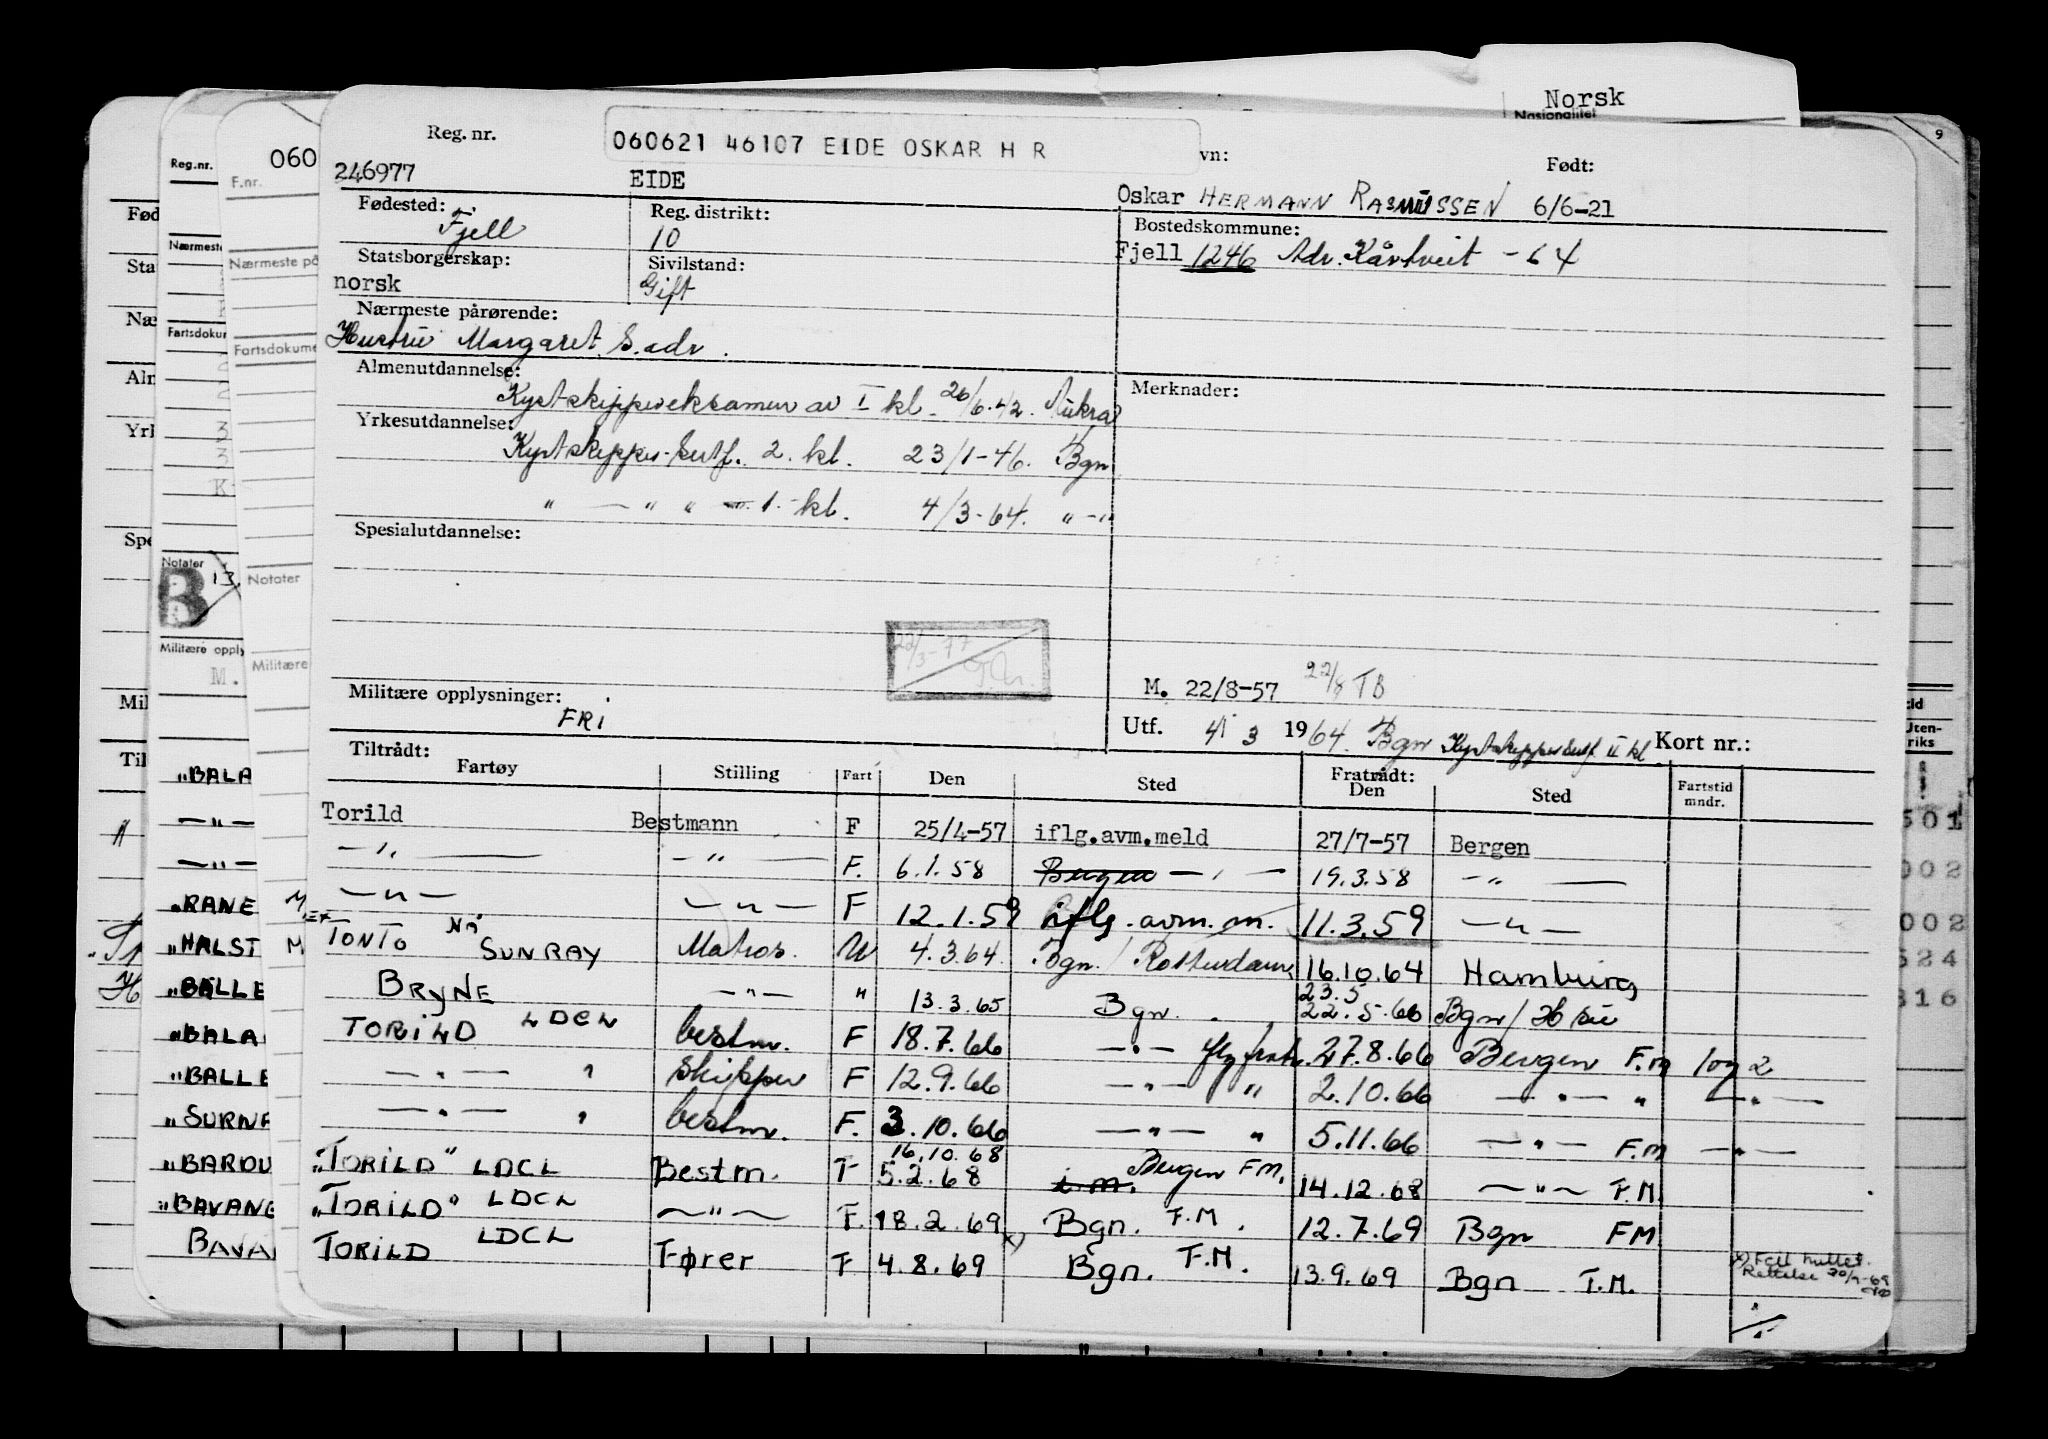 Norsk
Nasjonalitet
9
Reg. nr.
060621 46107 EIDE OSKAR H R
vn:
Født:
246977
EIDE
Oskar HERMANN RASMUSSEN 6/6-21
Fødested:
Fjell
Reg. distrikt:
10
Bostedskommune:
Fjell 1246 Adr. Kårtveit - 64
Statsborgerskap:
norsk
Sivilstand:
Gift
Nærmeste pårørende:
Hustru Margaret S. adr.
Almenutdannelse:
Kystskippereksamen av I kl. 26/6.42. Aukra
Merknader:
Yrkesutdannelse:
Kystskipper-Sertf. 2. kl. 23/1-46. Bgn
" — " " — 1. kl. 4/3-64. " - "
Spesialutdannelse:
22/3-77
Militære opplysninger:
FRI
M. 22/8-57 22/8 TB
Utf. 4/3 1964. Bgn Kystskippersertf. II kl. Kort nr.:
Tiltrådt:
Fartøy Stilling Fart Den Sted Fratrådt: Den Sted Fartstid mndr.
Torild Bestmann F 25/4-57 iflg.avm.meld 27/7-57 Bergen
— " — — " — F. 6.1.58 Bergen — " — 19.3.58 — " —
— " — — " — F 12.1.59 iflg. avm. m. 11.3.59 — " —
TONTO NÅ SUNRAY Matros. U 4.3.64. Bgn. / Rotterdam 16.10.64 Hamburg
BRYNE — " — " 13.3.65 Bgn. 23.5 22.5.66 Bgn /
TORILD LDCL bestm. F 18.7.66 — " — 27.8.66 Bergen F.M 1 og 2
— " — " Skipper F 12.9.66 — " — " 2.10.66 — " — " — " —
— " — " bestm. F. 3.10.66 — " — " 5.11.66 — " — F.M — " —
"TORILD" LDCL Bestm. F 16.10.68 5.2.68 i.m. Bergen F.M. 14.12.68 — " — F.M.
"TORILD" LDCL — " — F. 18.2.69 x) Bgn. F.M. 12.7.69 Bgn FM
TORILD LDCL Fører F 4.8.69 Bgn. F.M. 13.9.69 Bgn F.M.
x) Feil hullet. Rettelse 30/9-69
Reg.nr.
F.nr.
060
Fød
Nærmeste
Nærmeste på
Sta
Næ
Fartsdokum
Fartsdokume
Alm
Yrk
Spe
Notater
Notater
B
13.
Militære opply
Militære
M.
Mil
Til
"BALA
— " —
— " —
"RANE
"HALST
"BALLE
"BALA
"BALLE
"SURNA
"BARDU
"BAVANE
BAVA
Uten-
riks
501
002
002
524
816